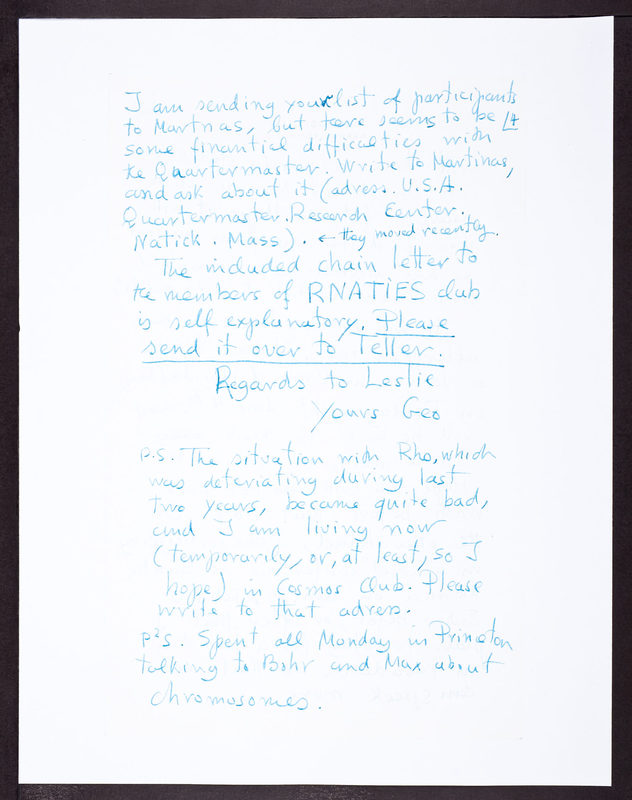 I am sending your list of participants
to Martnas, but tere seems to be
some finantial difficulties with
te Quartermaster. Write to Martinas,
and ask about it (adress. U.S.A.
Quartermaster. Research Center.
Natick. Mass). ← they moved recently.
The included chain letter to
te members of RNATIES club
is self explanatory. Please
send it over to Teller.
Regards to Leslie
Yours Geo
P.S. The situation with Rho, which
was deteriating during last
two years, became quite bad,
and I am living now
(temporarily, or, at least, so I
hope) in Cosmos Club. Please
write to that adress.
P²S. Spent all Monday in Princeton
talking to Bohr and Max about
chromosomes.